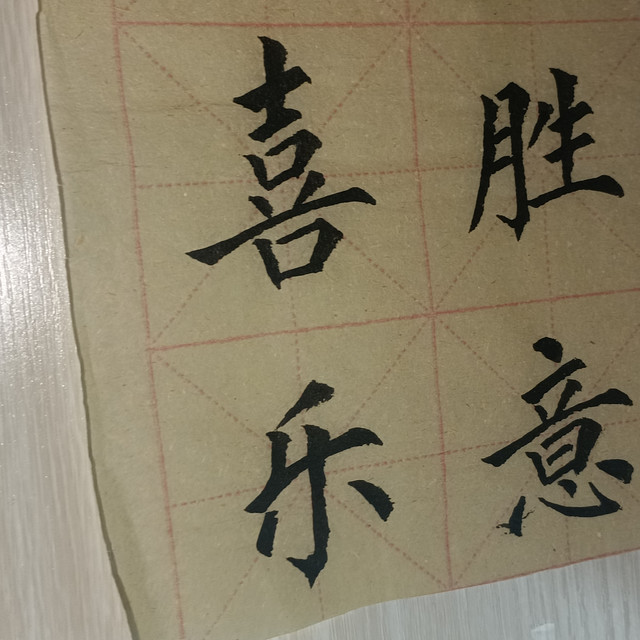 胜意
喜乐